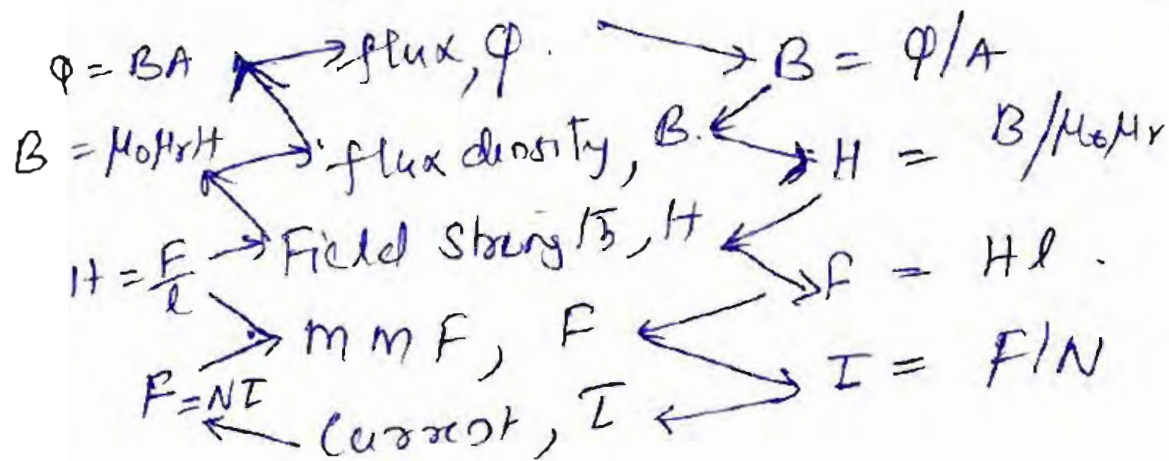 φ = BA flux, φ. B = φ/A
B = μ0μrH flux density, B. H = B/μ0μr
H = F/l Field Strength, H F = Hl.
m m F, F
F = NI I = F/N
Current, I